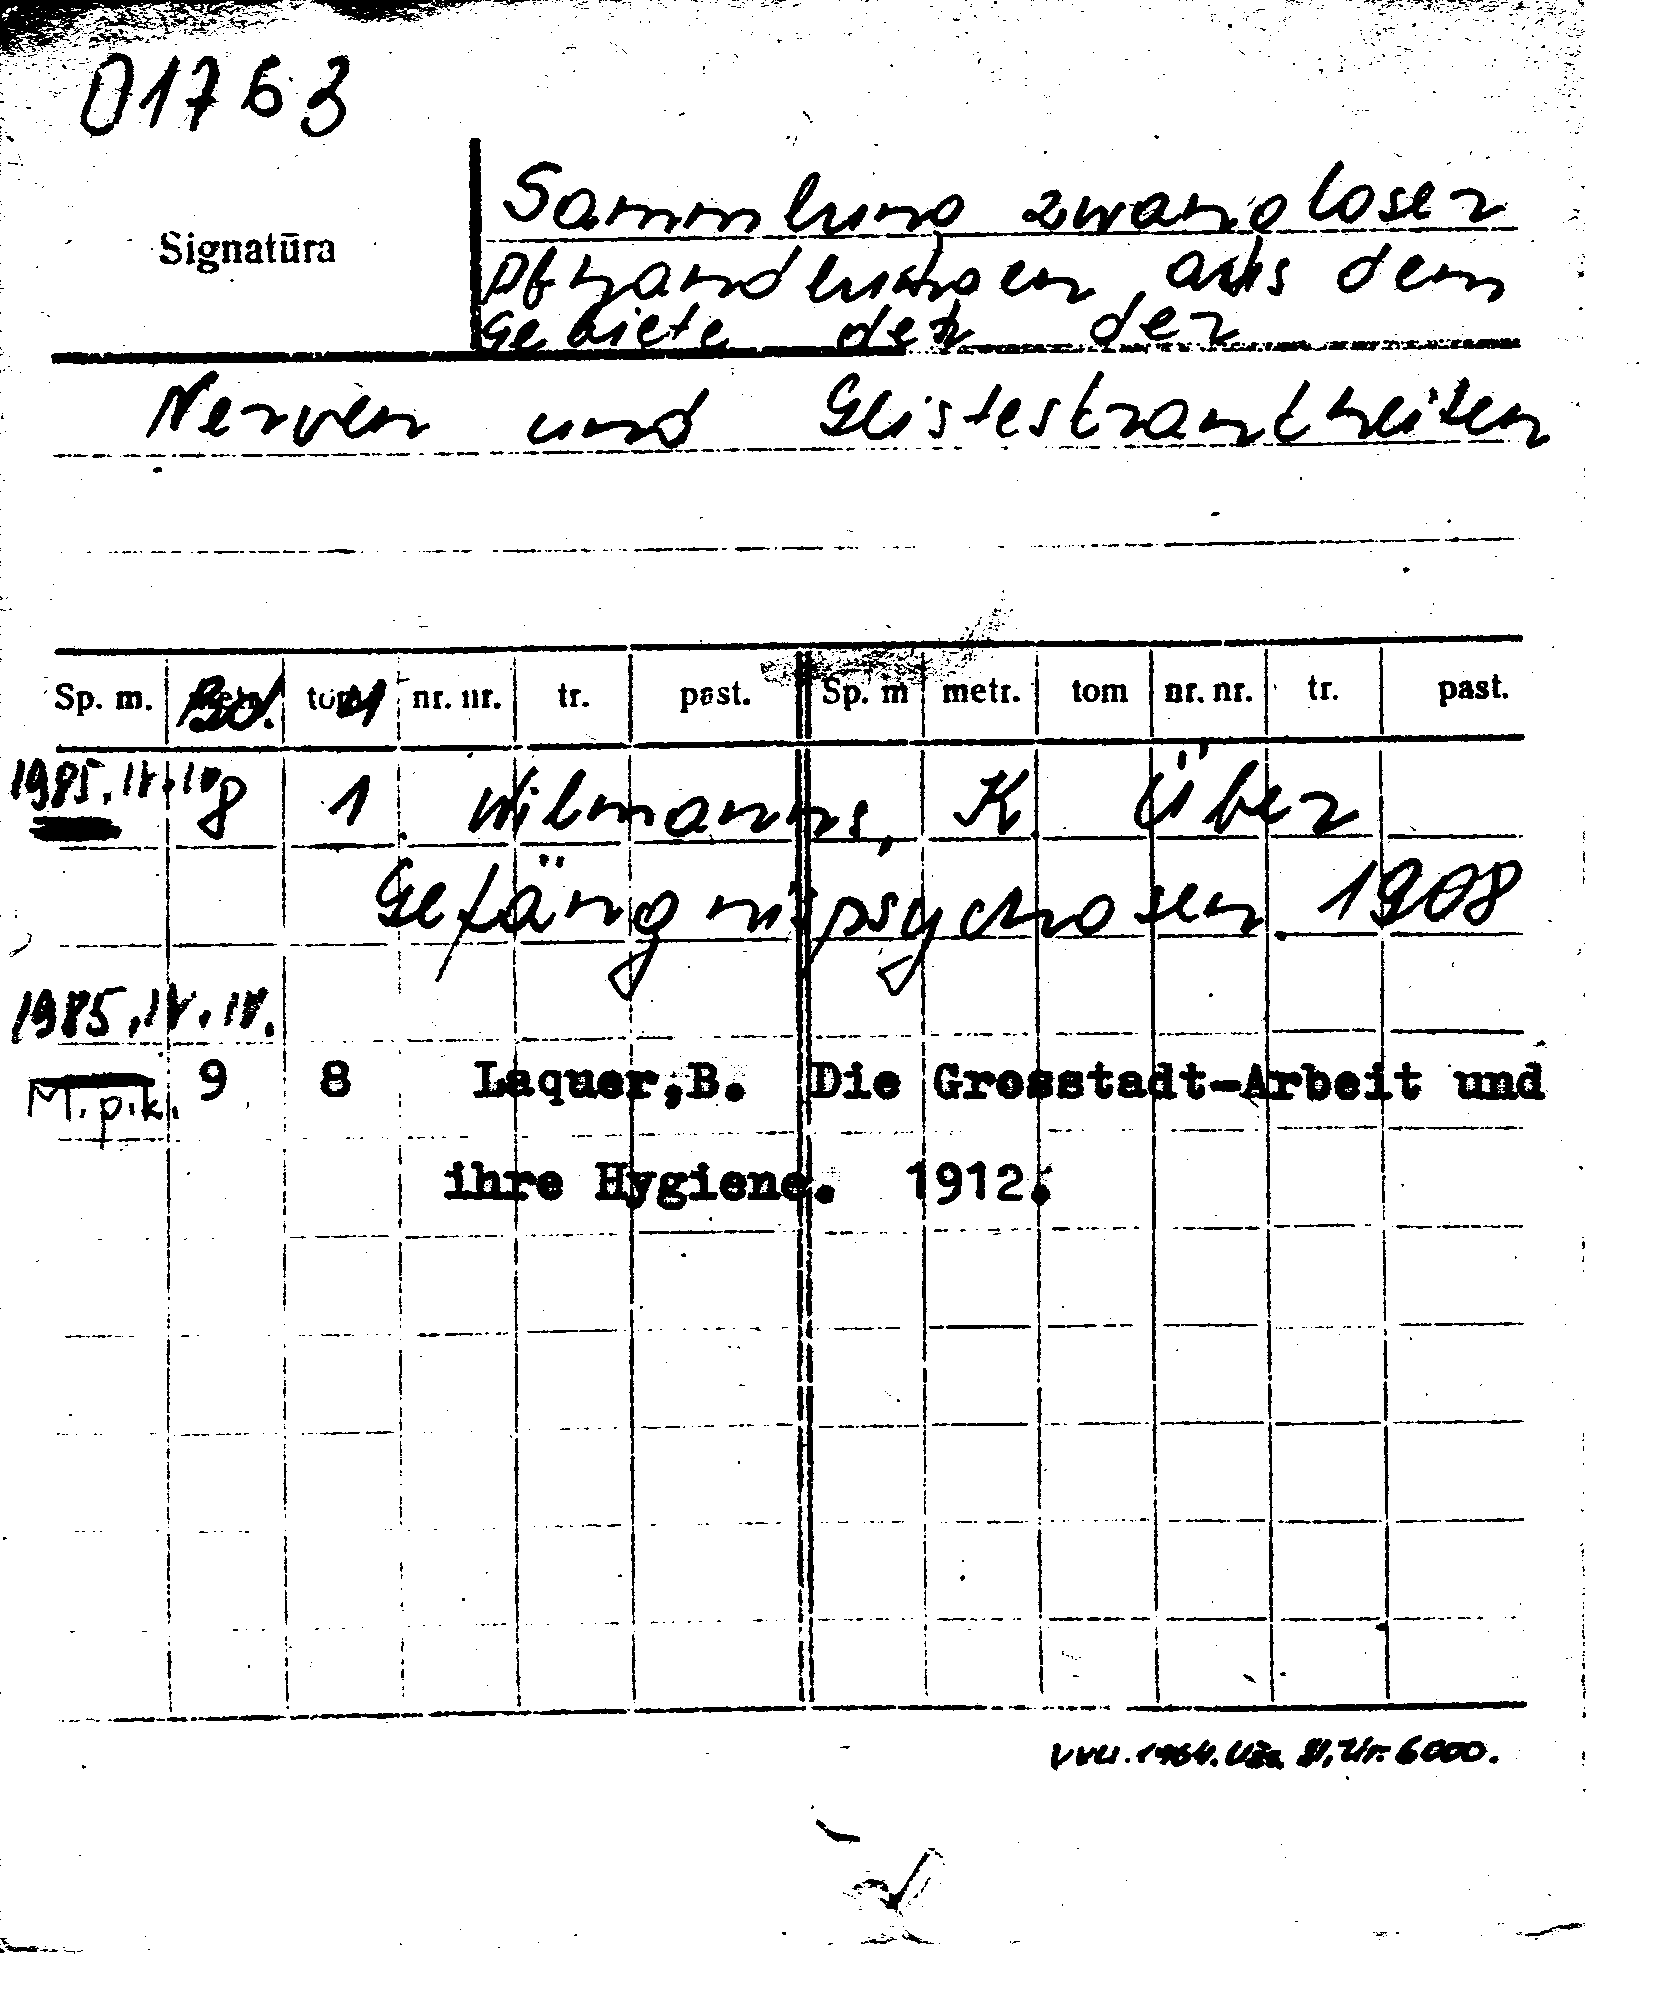 01763
Signatūra
Sammlung zwangloser
Abhandlungen aus dem
Gebiete der der
Nerven und Geisteskrankheiten
Sp. m. Bd. tom nr. nr. tr. past. Sp. m metr. tom nr. nr. tr. past.
1985.IV.IV 8 1 Wilmanns, K Über
Gefängnispsychosen. 1908
1985.IV.IV.
M.p.k. 9 8 Laquer,B. Die Grosstadt-Arbeit und
ihre Hygiene. 1912.
VVU.1964.Užs. Nr. 6000.